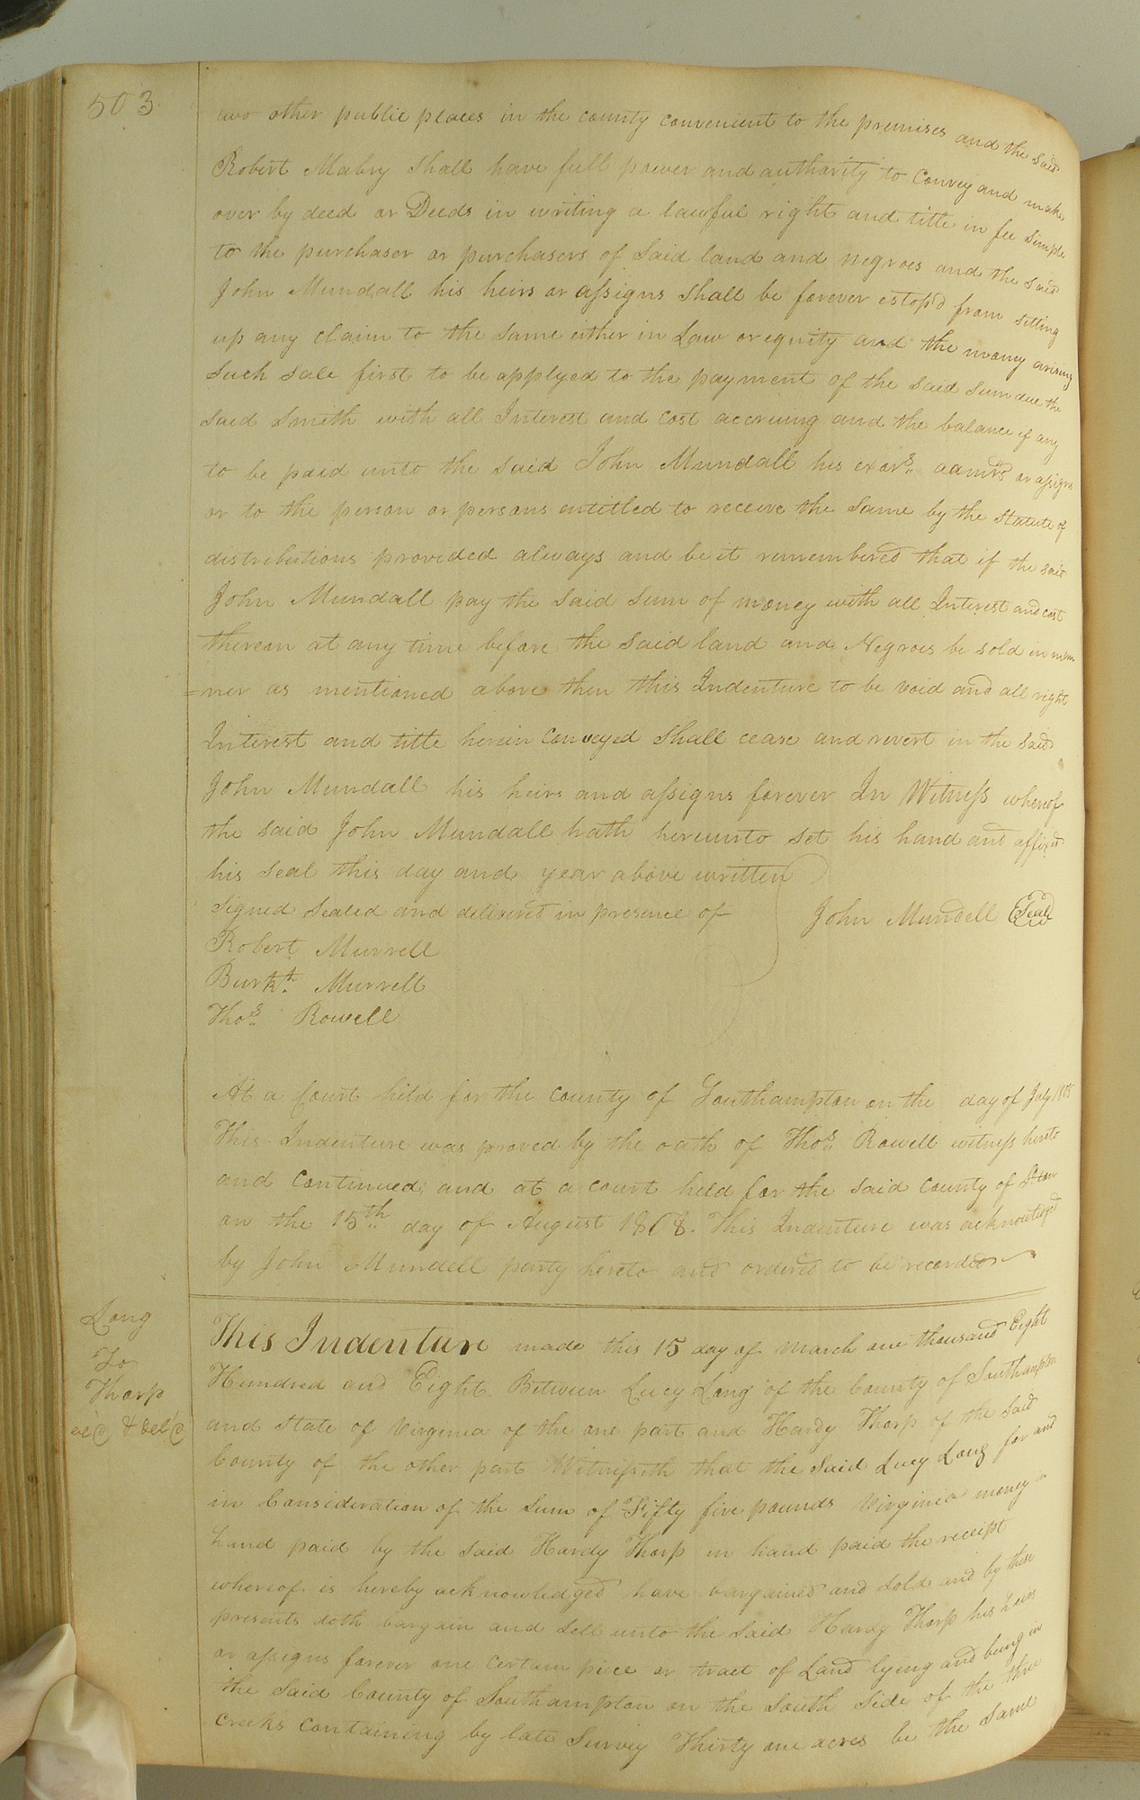 503
two other public places in the county convenient to the premises and the said
Robert Mabry shall have full power and authority to Convey and make
over by deed or Deeds in writing a lawful right and title in fee simple
to the purchaser or purchasers of said land and negroes and the said
John Mundall his heirs or assigns shall be forever estop'd from setting
up any claim to the same either in Law or equity and the money arising
such sale first to be applyed to the payment of the said sum due the
said Smith with all Interest and cost accruing and the balance if any
to be paid unto the said John Mundall his exors. admrs or assigns
or to the person or persons entitled to receive the same by the statute of
distributions provided always and be it remembered that if the said
John Mundall pay the said sum of money with all Interest and cost
thereon at any time before the said land and Negroes be sold in man
=ner as mentioned above then this Indenture to be void and all right
Interest and title herein conveyed shall cease and revert in the said
John Mundall his heirs and assigns forever In Witness whereof
the said John Mundall hath hereunto set his hand and affixed
his seal this day and year above written
Signed Sealed and delivered in presence of John Mundell Seal
Robert Murrell
Burkth. Murrell
Thos. Rowell
At a Court held for the County of Southampton on the day of July 1808
This Indenture was proved by the oath of Thos. Rowell witness hereto
and Continued, and at a court held for the said County of Stton
on the 15th. day of August 1808. This Indenture was acknowledged
by John Mundell party hereto and ordered to be recorded
Long
To
Tharp
& Del'd
This Indenture made this 15 day of March one thousand Eight
Hundred and Eight Between Lucy Long of the County of Southampton
and state of Virginia of the one part and Hardy Tharp of the said
County of the other part Witnesseth that the said Lucy Long for and
in Consideration of the sum of Fifty five pounds Virginia money in
hand paid by the said Hardy Tharp in hand paid the receipt
whereof is hereby acknowledged have bargained and sold and by these
presents doth bargain and sell unto the said Hardy Tharp his heirs
or assigns forever one certain piece or tract of Land lying and being in
the said County of Southampton on the South Side of the three
creeks containing by late Survey Thirty one acres be the same